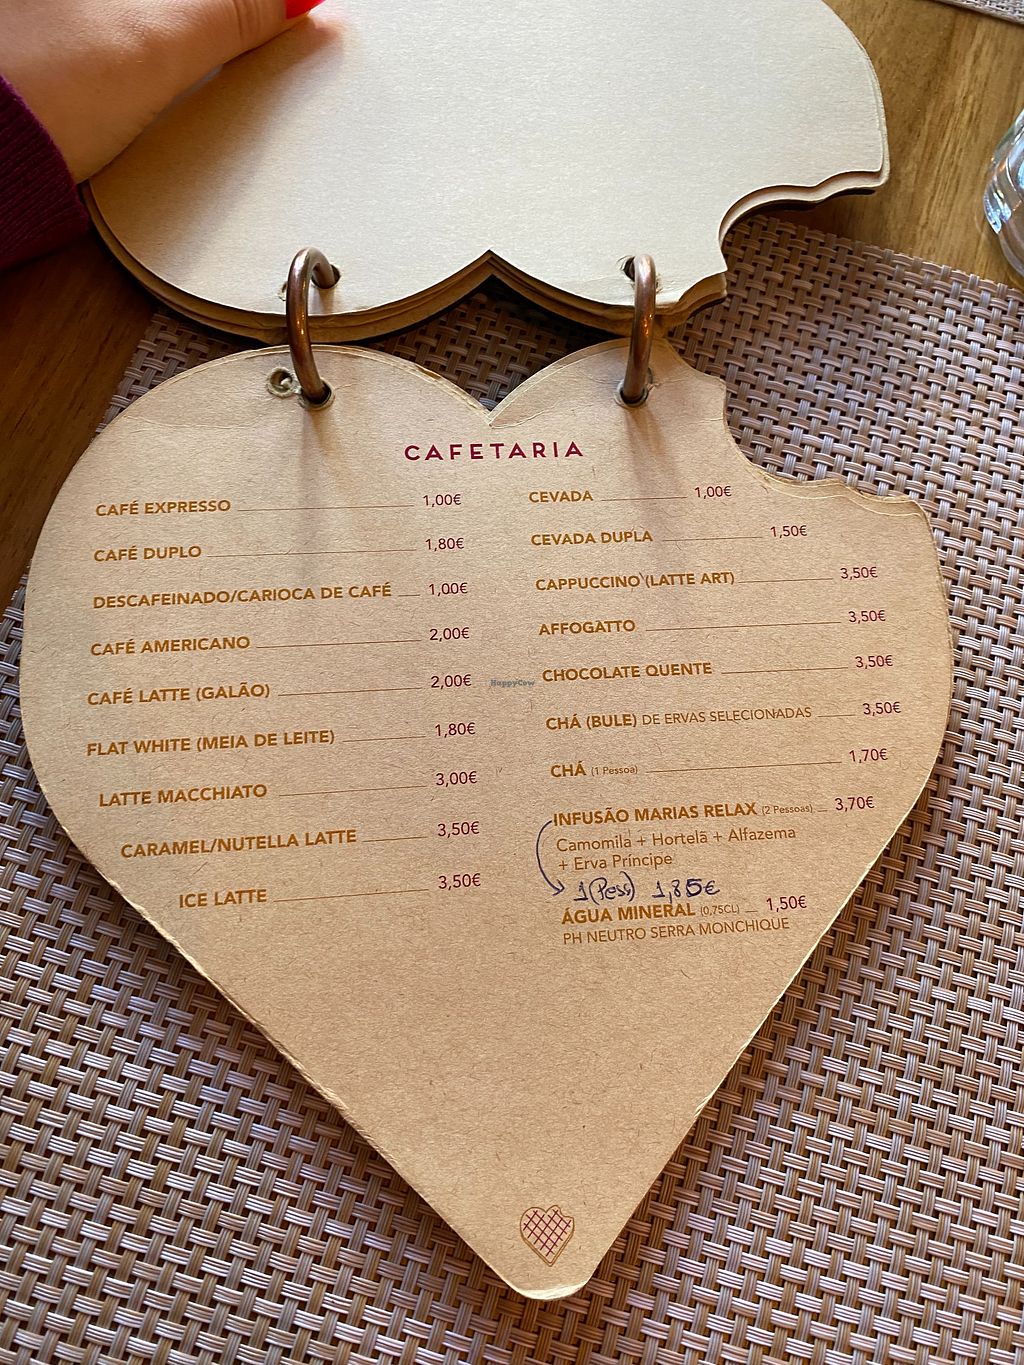 CAFETARIA
CAFÉ EXPRESSO 1,00€
CAFÉ DUPLO 1,80€
DESCAFEINADO/CARIOCA DE CAFÉ 1,00€
CAFÉ AMERICANO 2,00€
CAFÉ LATTE (GALÃO) 2,00€
FLAT WHITE (MEIA DE LEITE) 1,80€
LATTE MACCHIATO 3,00€
CARAMEL/NUTELLA LATTE 3,50€
ICE LATTE 3,50€
CEVADA 1,00€
CEVADA DUPLA 1,50€
CAPPUCCINO (LATTE ART) 3,50€
AFFOGATTO 3,50€
CHOCOLATE QUENTE 3,50€
CHÁ (BULE) DE ERVAS SELECIONADAS 3,50€
CHÁ (1 Pessoa) 1,70€
INFUSÃO MARIAS RELAX (2 Pessoas) 3,70€
Camomila + Hortelã + Alfazema
+ Erva Príncipe
1 (Pess) 1,85€
ÁGUA MINERAL (0,75CL) 1,50€
PH NEUTRO SERRA MONCHIQUE
HappyCow